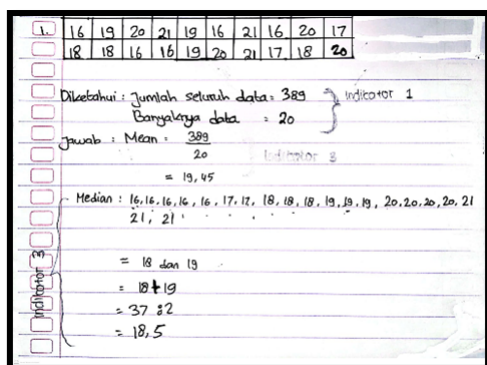 1. 16 19 20 21 19 16 21 16 20 17
18 18 16 16 19 20 21 17 18 20
Diketahui : Jumlah seluruh data = 389
Banyaknya data = 20
Indicator 1
Jawab : Mean = 389
20
Indikator 3
= 19,45
Median : 16, 16, 16, 16, 16, 17, 17, 18, 18, 18, 19, 19, 19, 20, 20, 20, 20, 21
21, 21
= 18 dan 19
= 18 + 19
= 37 : 2
= 18,5
Indicator 3